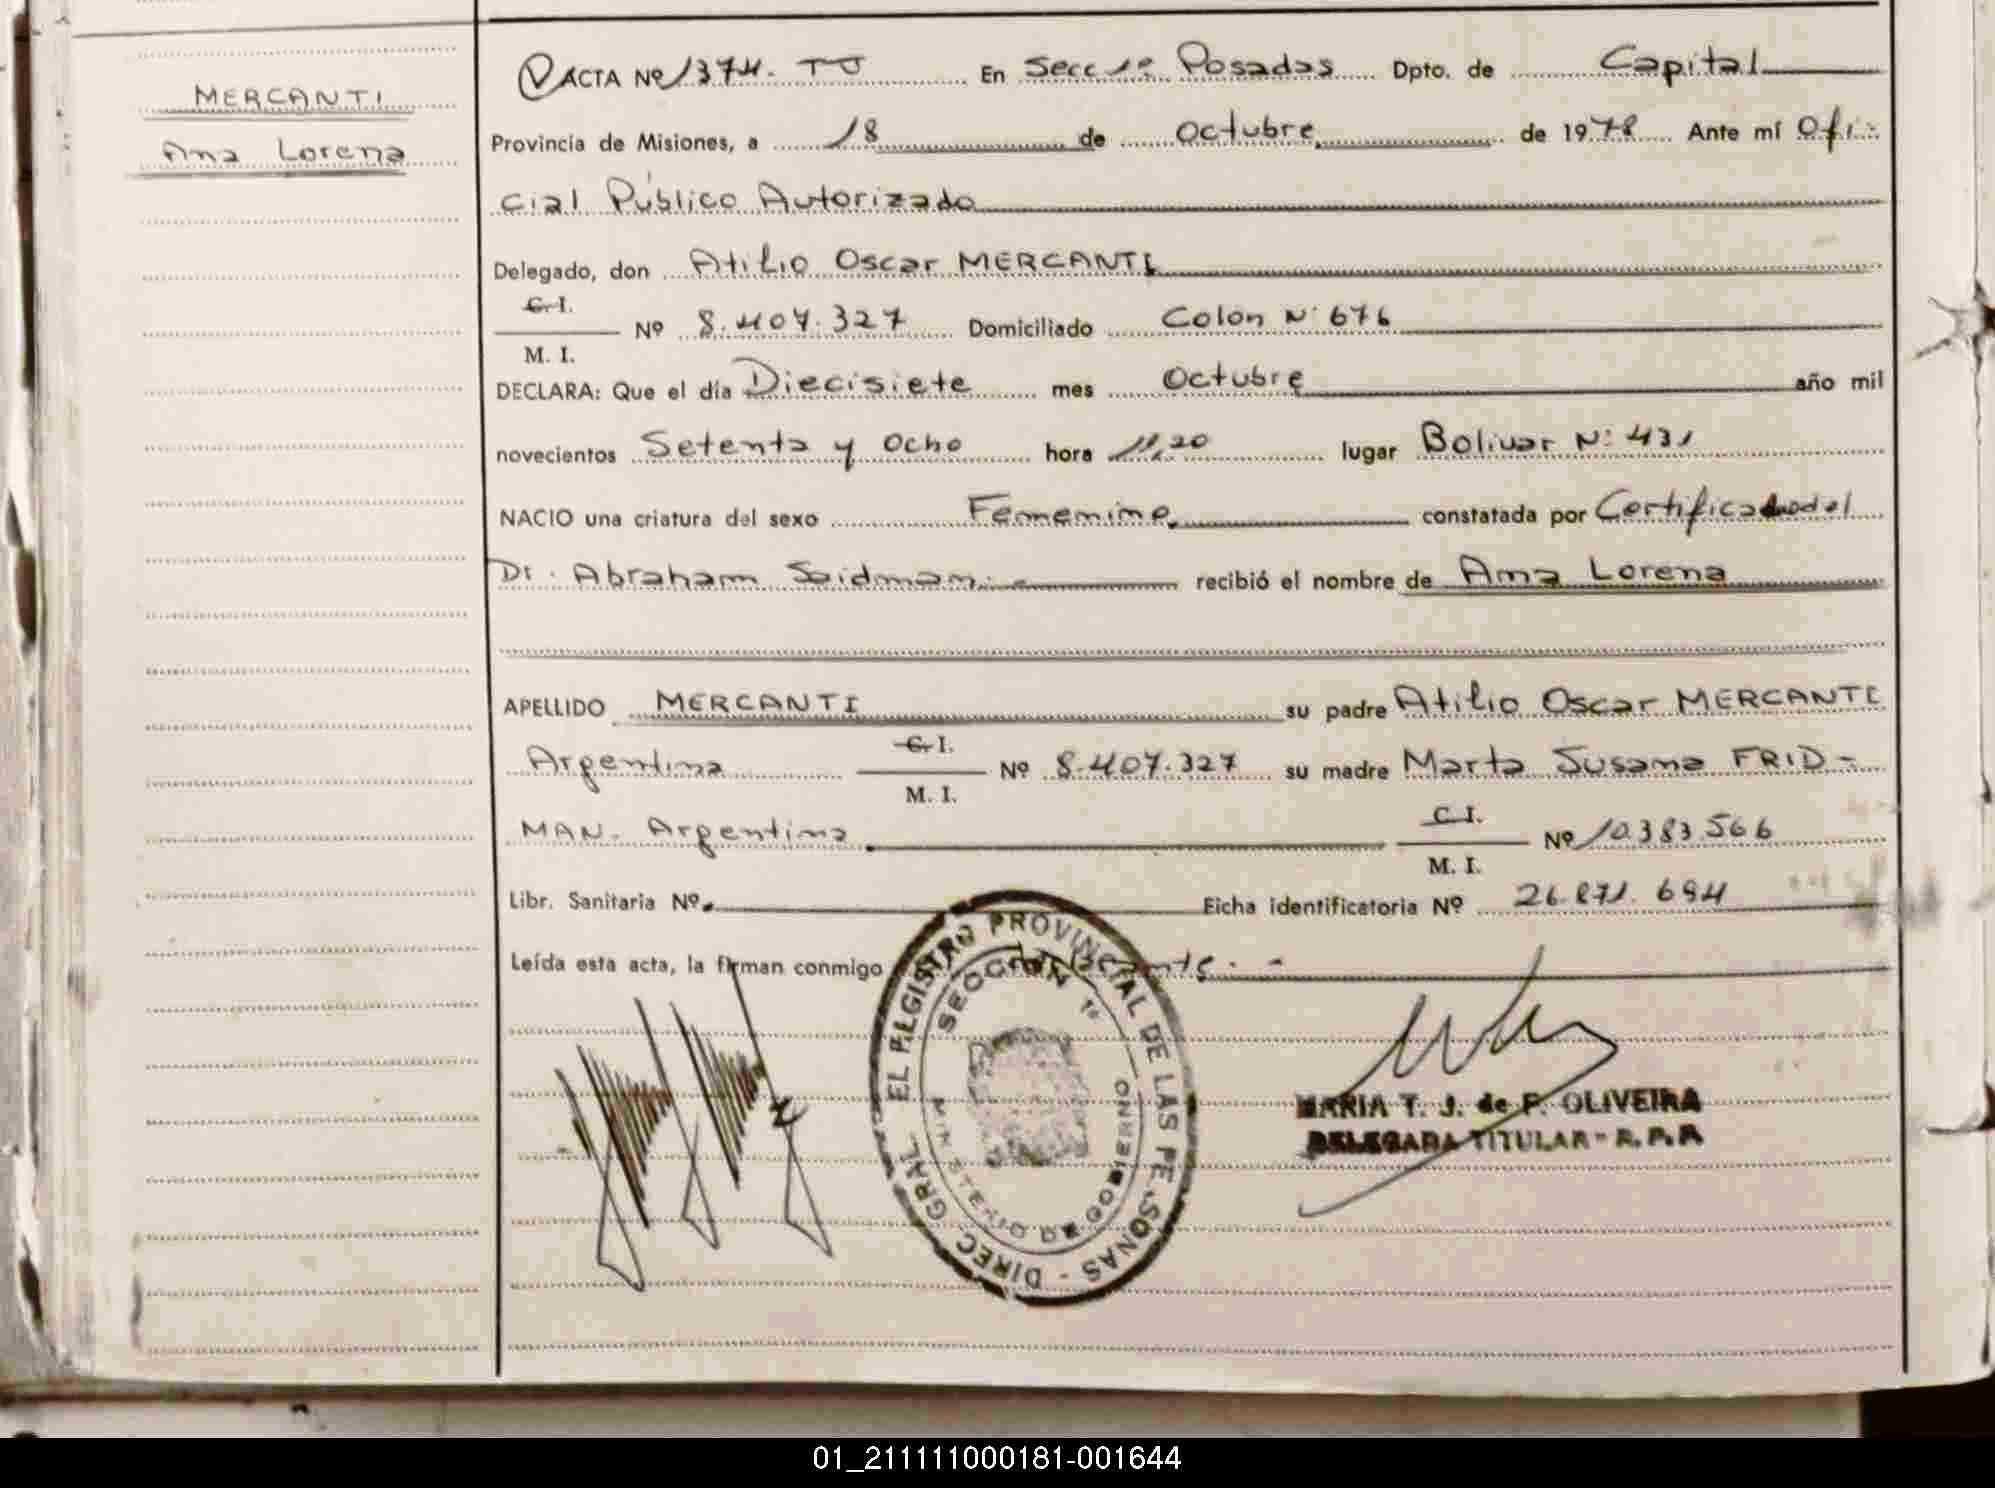 MERCANTI
Ana Lorena
ACTA Nº 1374. TJ En Secc 1ª Posadas Dpto. de Capital
Provincia de Misiones, a 18 de Octubre de 1978 Ante mí Ofi-
cial Público Autorizado
Delegado, don Atilio Oscar MERCANTI
C. I.
Nº 8.407.327 Domiciliado Colón Nº 676
M. I.
DECLARA: Que el día Diecisiete mes Octubre año mil
novecientos Setenta y Ocho hora 11,20 lugar Bolivar Nº 431
NACIO una criatura del sexo Femenino constatada por Certificado del
Dr. Abraham Seidman recibió el nombre de Ana Lorena
APELLIDO MERCANTI su padre Atilio Oscar MERCANTI
C. I.
Argentina Nº 8.407.327 su madre Marta Susana FRID-
M. I.
C. I.
MAN. Argentina Nº 10.383.566
M. I.
Libr. Sanitaria Nº Ficha identificatoria Nº 26.871.694
Leída esta acta, la firman conmigo
DIREC. GRAL. EL REGISTRO PROVINCIAL DE LAS PERSONAS
SECCION 1ª
MINISTERIO DE GOBIERNO
MARIA T. J. de F. OLIVEIRA
DELEGADA TITULAR - R. P. P.
01_211111000181-001644